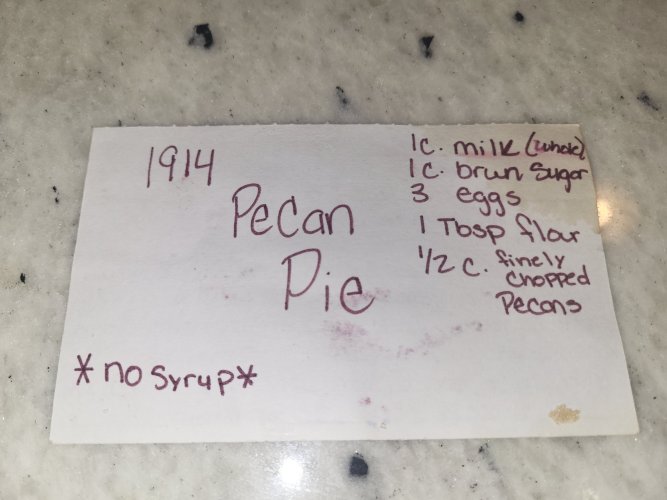 1914
Pecan
Pie
1c. milk (whole)
1c. brwn sugar
3 eggs
1 Tbsp flour
1/2 c. finely
chopped
Pecans
*no syrup*